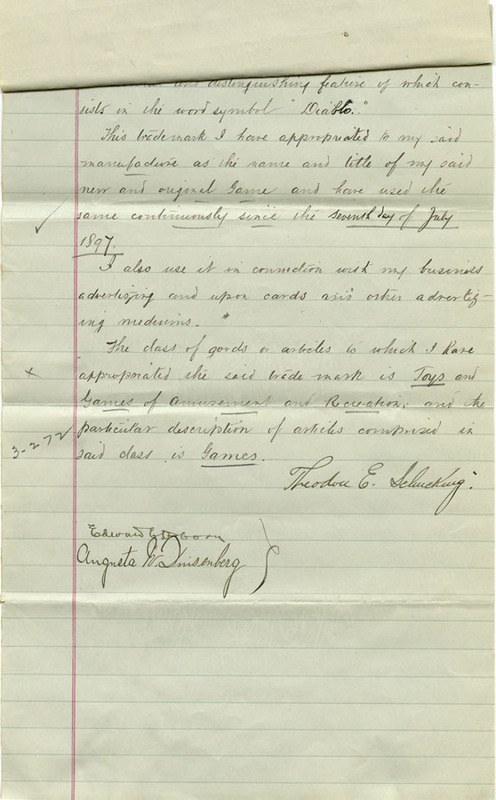 and distinguishing feature of which con-
sists in the word symbol "Diablo."
This trademark I have appropriated to my said
manufacture as the name and title of my said
new and original Game and have used the
same continuously since the seventh day of July
1897.
I also use it in connection with my business
advertizing and upon cards and other advertiz-
ing mediums.
The class of goods or articles to which I have
x
appropriated the said trade mark is Toys and
Games of Amusement and Recreation, and the
particular description of articles comprized in
3-2 72
said class is Games.
Theodore E. Schucking.
Edward E. Osborn
Augusta W. Duisenberg